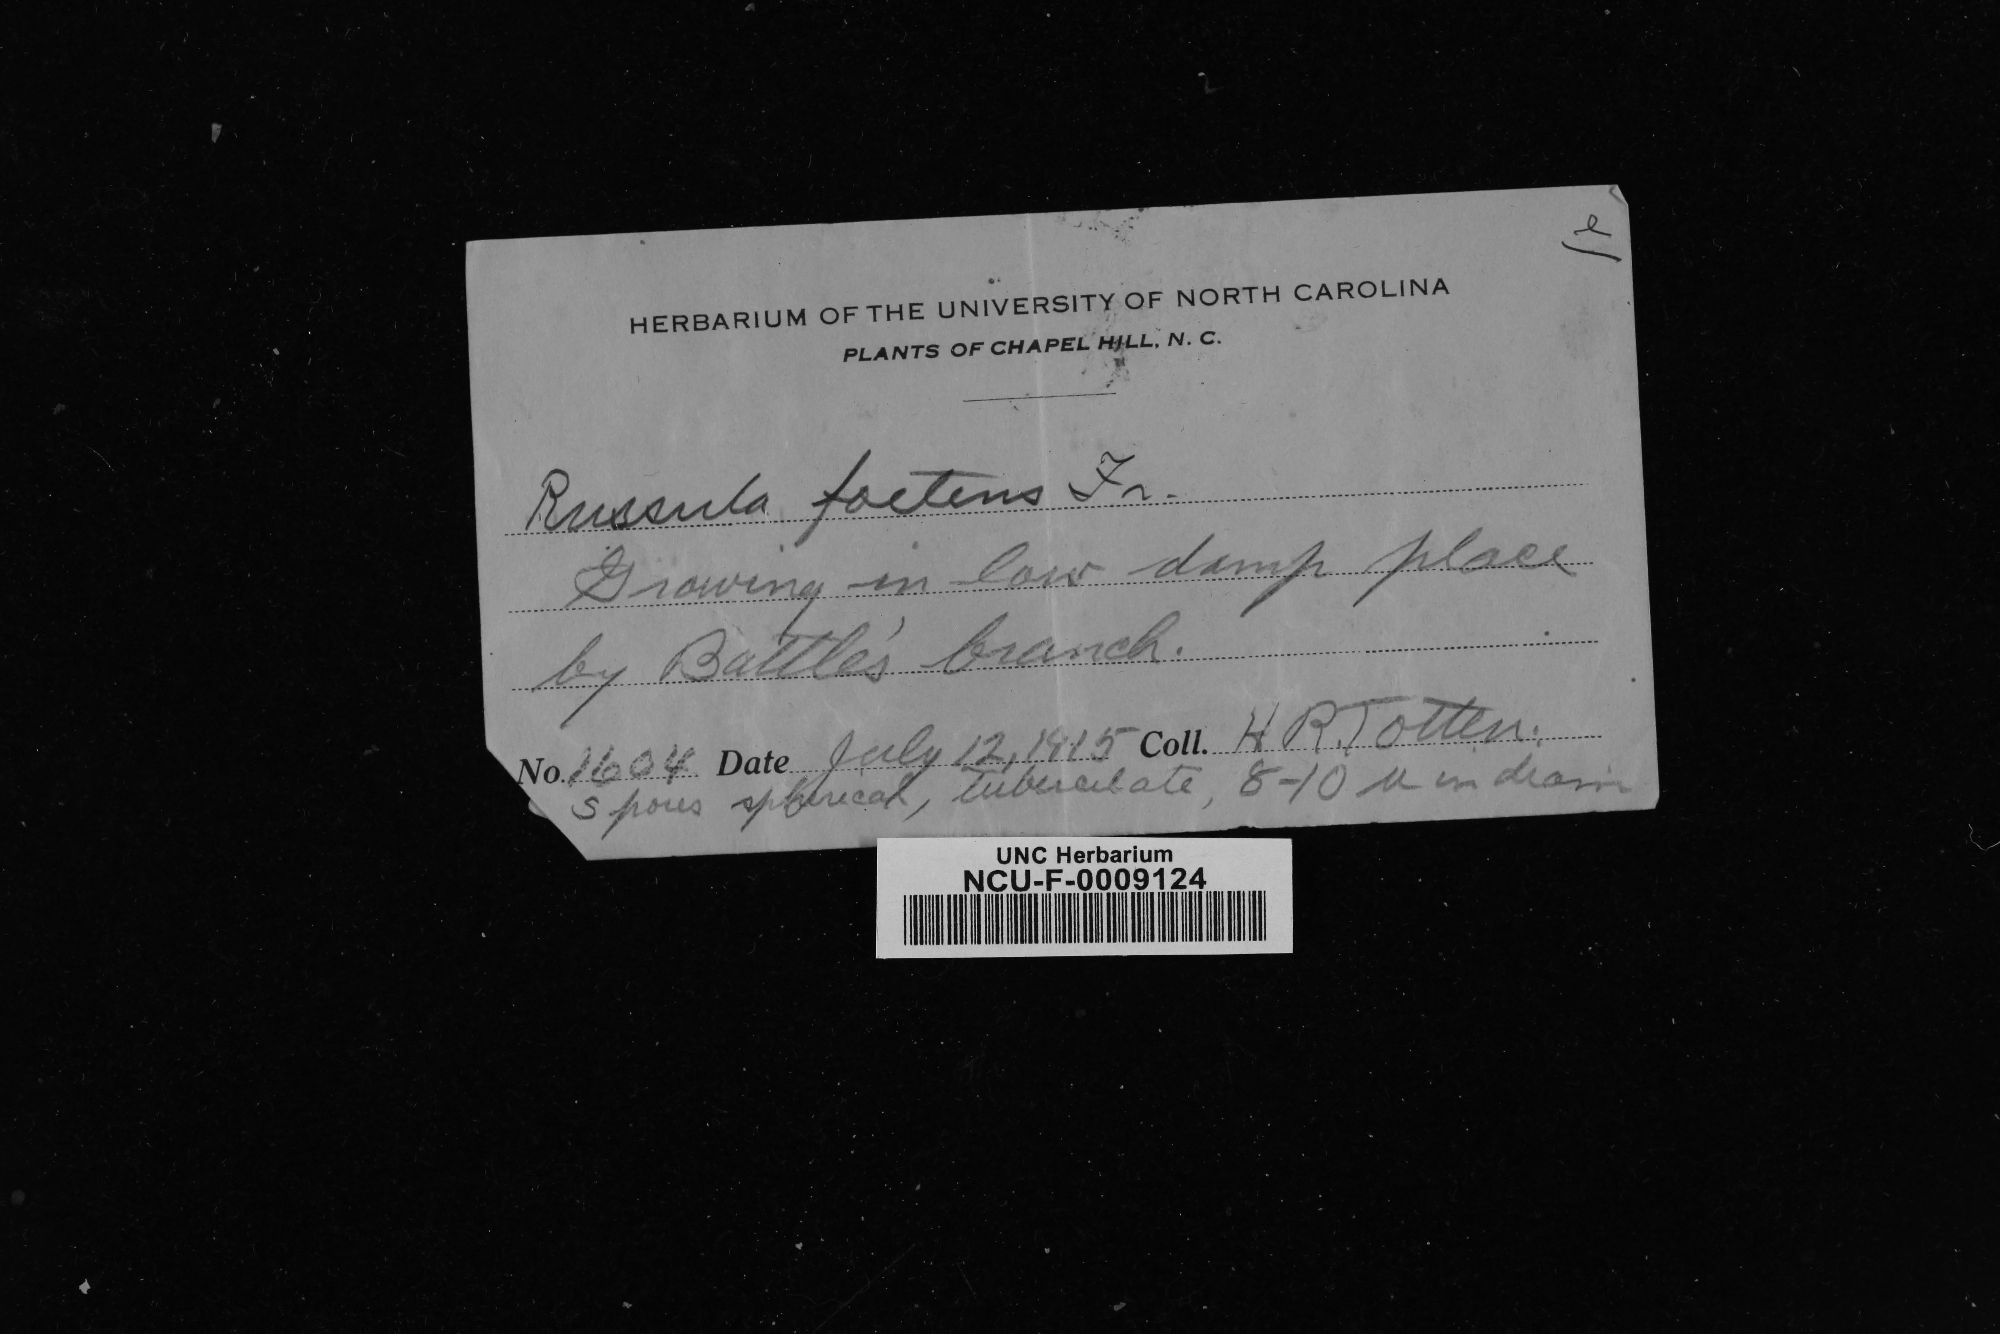 e
HERBARIUM OF THE UNIVERSITY OF NORTH CAROLINA
PLANTS OF CHAPEL HILL, N. C.
Russula foetens Fr.
Growing in low damp place
by Battle's branch.
No. 1604 Date July 12, 1915 Coll. H R. Totten.
Spores spherical, tuberculate, 8-10 u in diam
UNC Herbarium
NCU-F-0009124